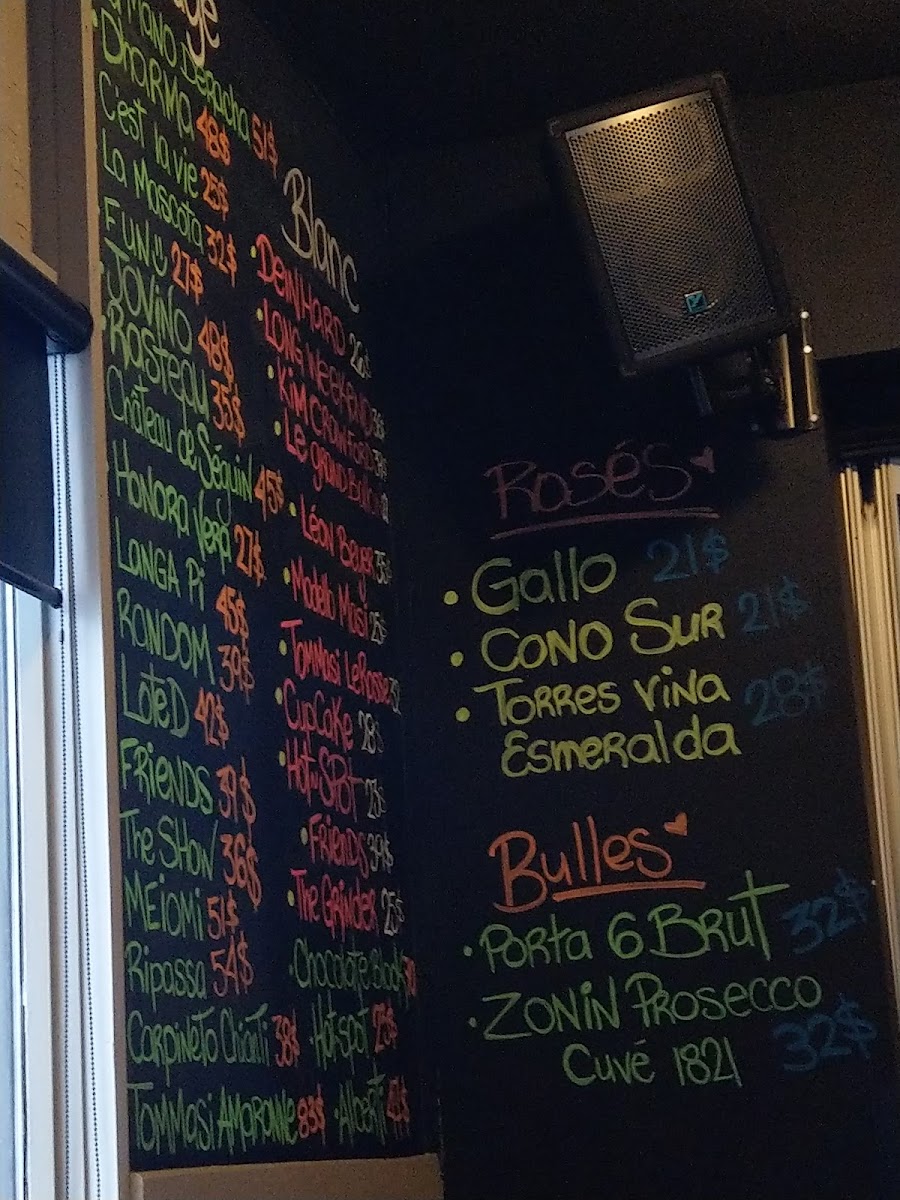 Mano Depacha 51$
Dharma 48$
C'est la vie 25$
La Mascota 32$
FUN 27$
JOVINO 48$
RASTEAU 35$
Château de Séguin 45$
HONORA VERA 27$
LANGA Pi 45$
RONDOM 39$
LOTE D 42$
FRIENDS 39$
The SHOW 36$
MEIOMI 51$
Ripassa 54$
CARPINETO Chianti 38$
TOMMASI AMARONE 83$
Blanc
• DEINHARD
• LONG WEEKEND
• KIM CRAWFORD
• Le grand
• Léon Beyer
• Modello Masi 25$
• Tommasi LeRosse
• CUPCAKE 28$
• HOT SPOT
• FRIENDS 39$
• The GRINDER 25$
• Chocolate Block
• HotSpot 25$
• Albert
Rosés
• Gallo 21$
• CONO SUR 21$
• TORRES VIÑA 28$
Esmeralda
Bulles
• PORTA 6 BRUT 32$
• ZONIN PROSECCO
Cuvé 1821 32$